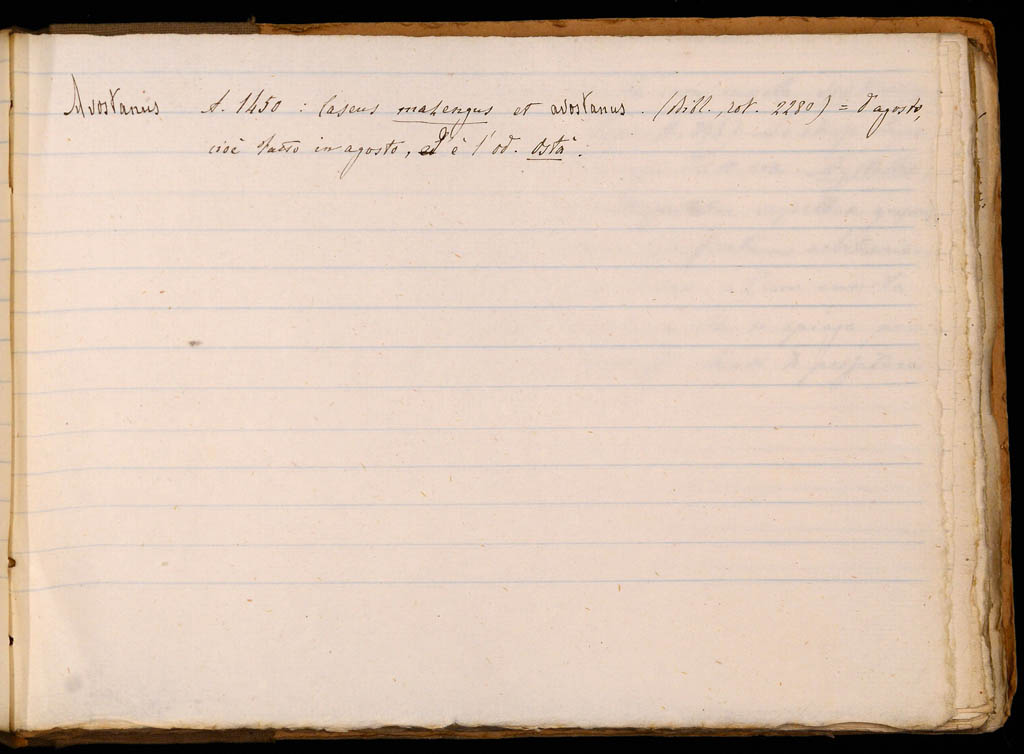 Avostanus A. 1450 : Caseus masengus et avostanus. (Bibl., rot. 2280) = d'agosto,
cioè fatto in agosto, ed è l'od. Ostà.